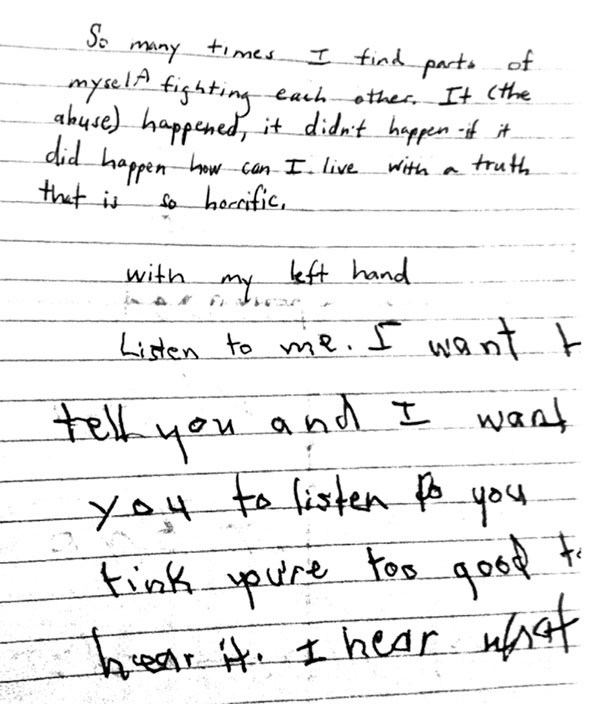 So many times I find parts of
myself fighting each other. It (the
abuse) happened, it didn't happen - if it
did happen how can I live with a truth
that is so horrific.
with my left hand
Listen to me. I want t
tell you and I want
you to listen Do you
tink you're too good to
hear it. I hear what